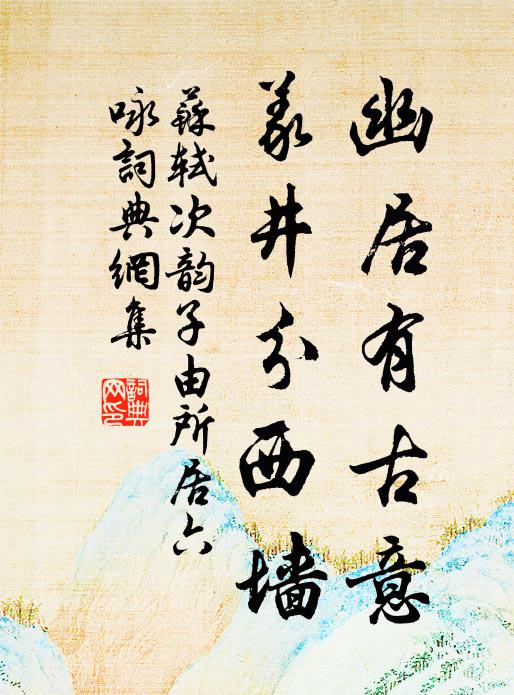 幽居有古意
义井分西墙
蘇軾次韵子由所居六
咏詞典網集
詞典
网印